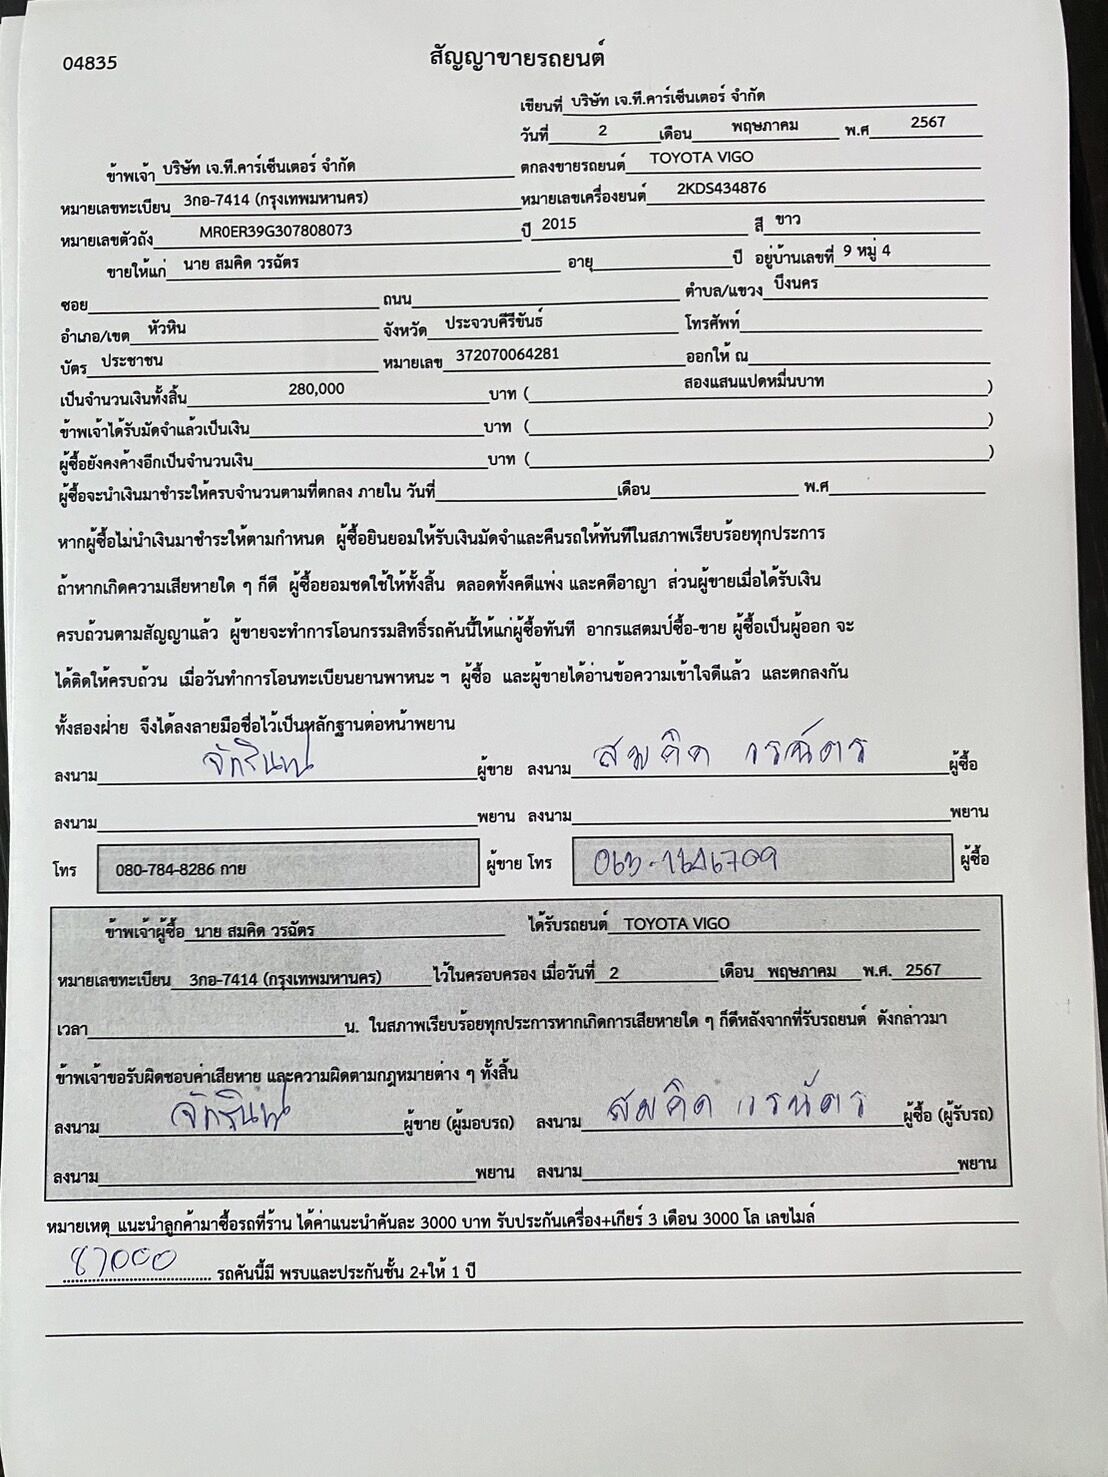 04835
สัญญาขายรถยนต์
เขียนที่ บริษัท เจ.ที.คาร์เซ็นเตอร์ จำกัด
วันที่ 2 เดือน พฤษภาคม พ.ศ 2567
ข้าพเจ้า บริษัท เจ.ที.คาร์เซ็นเตอร์ จำกัด ตกลงขายรถยนต์ TOYOTA VIGO
หมายเลขทะเบียน 3กอ-7414 (กรุงเทพมหานคร) หมายเลขเครื่องยนต์ 2KDS434876
หมายเลขตัวถัง MR0ER39G307808073 ปี 2015 สี ขาว
ขายให้แก่ นาย สมคิด วรฉัตร อายุ ปี อยู่บ้านเลขที่ 9 หมู่ 4
ซอย ถนน ตำบล/แขวง บึงนคร
อำเภอ/เขต หัวหิน จังหวัด ประจวบคีรีขันธ์ โทรศัพท์
บัตร ประชาชน หมายเลข 372070064281 ออกให้ ณ
เป็นจำนวนเงินทั้งสิ้น 280,000 บาท ( สองแสนแปดหมื่นบาท )
ข้าพเจ้าได้รับมัดจำแล้วเป็นเงิน บาท ( )
ผู้ซื้อยังคงค้างอีกเป็นจำนวนเงิน บาท ( )
ผู้ซื้อจะนำเงินมาชำระให้ครบจำนวนตามที่ตกลง ภายใน วันที่ เดือน พ.ศ
หากผู้ซื้อไม่นำเงินมาชำระให้ตามกำหนด ผู้ซื้อยินยอมให้รับเงินมัดจำและคืนรถให้ทันทีในสภาพเรียบร้อยทุกประการ
ถ้าหากเกิดความเสียหายใด ๆ ก็ดี ผู้ซื้อยอมชดใช้ให้ทั้งสิ้น ตลอดทั้งคดีแพ่ง และคดีอาญา ส่วนผู้ขายเมื่อได้รับเงิน
ครบถ้วนตามสัญญาแล้ว ผู้ขายจะทำการโอนกรรมสิทธิ์รถคันนี้ให้แก่ผู้ซื้อทันที อากรแสตมป์ซื้อ-ขาย ผู้ซื้อเป็นผู้ออก จะ
ได้ติดให้ครบถ้วน เมื่อวันทำการโอนทะเบียนยานพาหนะ ฯ ผู้ซื้อ และผู้ขายได้อ่านข้อความเข้าใจดีแล้ว และตกลงกัน
ทั้งสองฝ่าย จึงได้ลงลายมือชื่อไว้เป็นหลักฐานต่อหน้าพยาน
ลงนาม ผู้ขาย ลงนาม สมคิด วรฉัตร ผู้ซื้อ
ลงนาม พยาน ลงนาม พยาน
โทร 080-784-8286 กาย ผู้ขาย โทร ผู้ซื้อ
ข้าพเจ้าผู้ซื้อ นาย สมคิด วรฉัตร ได้รับรถยนต์ TOYOTA VIGO
หมายเลขทะเบียน 3กอ-7414 (กรุงเทพมหานคร) ไว้ในครอบครอง เมื่อวันที่ 2 เดือน พฤษภาคม พ.ศ. 2567
เวลา น. ในสภาพเรียบร้อยทุกประการหากเกิดการเสียหายใด ๆ ก็ดีหลังจากที่รับรถยนต์ ดังกล่าวมา
ข้าพเจ้าขอรับผิดชอบค่าเสียหาย และความผิดตามกฎหมายต่าง ๆ ทั้งสิ้น
ลงนาม ผู้ขาย (ผู้มอบรถ) ลงนาม สมคิด วรฉัตร ผู้ซื้อ (ผู้รับรถ)
ลงนาม พยาน ลงนาม พยาน
หมายเหตุ แนะนำลูกค้ามาซื้อรถที่ร้าน ได้ค่าแนะนำคันละ 3000 บาท รับประกันเครื่อง+เกียร์ 3 เดือน 3000 โล เลขไมล์
87000 รถคันนี้มี พรบและประกันชั้น 2+ให้ 1 ปี